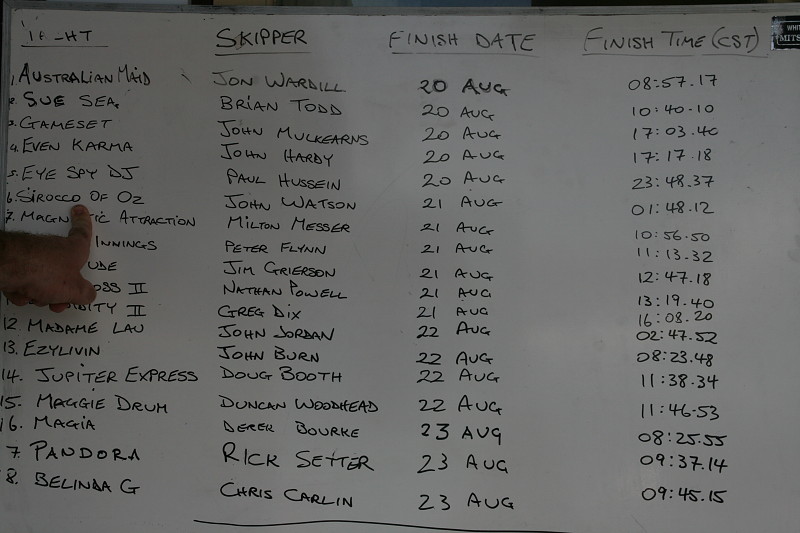 SKIPPER FINISH DATE FINISH TIME (CST)
1. AUSTRALIAN MAID JON WARDILL 20 AUG 08:57.17
2. SUE SEA. BRIAN TODD 20 AUG 10:40.10
3. GAMESET JOHN MULKEARNS 20 AUG 17:03.40
4. EVEN KARMA JOHN HARDY 20 AUG 17:17.18
5. EYE SPY DJ PAUL HUSSEIN 20 AUG 23:48.37
6. SIROCCO OF OZ JOHN WATSON 21 AUG 01:48.12
7. MAGNETIC ATTRACTION MILTON MESSER 21 AUG 10:56.50
INNINGS PETER FLYNN 21 AUG 11:13.32
UDE JIM GRIERSON 21 AUG 12:47.18
OSS II NATHAN POWELL 21 AUG 13:19.40
DITY II GREG DIX 21 AUG 16:08.20
12. MADAME LAU JOHN JORDAN 22 AUG 02:47.52
13. EZYLIVIN JOHN BURN 22 AUG 08:23.48
14. JUPITER EXPRESS DOUG BOOTH 22 AUG 11:38.34
15. MAGGIE DRUM DUNCAN WOODHEAD 22 AUG 11:46-53
16. MAGIA DEREK BOURKE 23 AUG 08:25.55
7. PANDORA RICK SETTER 23 AUG 09:37.14
8. BELINDA G CHRIS CARLIN 23 AUG 09:45.15